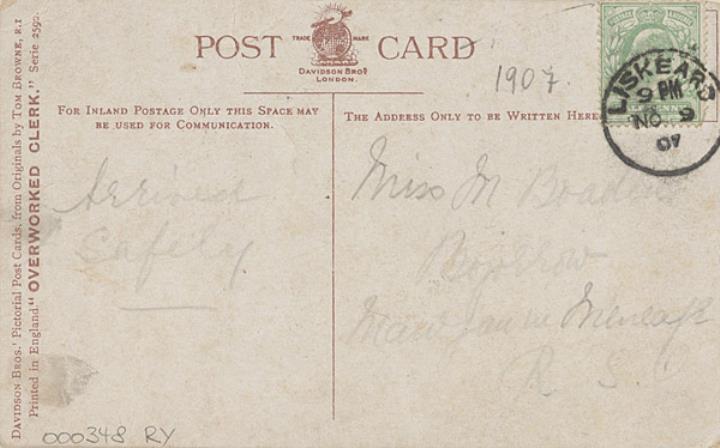 POST CARD
TRADE MARK
DAVIDSON BROS.
LONDON.
1907.
LISKEARD
9 PM
NO 9
07
FOR INLAND POSTAGE ONLY THIS SPACE MAY
BE USED FOR COMMUNICATION.
THE ADDRESS ONLY TO BE WRITTEN HERE
Arrived
Safely
Miss M
R S O
DAVIDSON BROS.' Pictorial Post Cards, from Originals by TOM BROWNE, R.I
Printed in England. "OVERWORKED CLERK." Serie 2592.
000348 RY